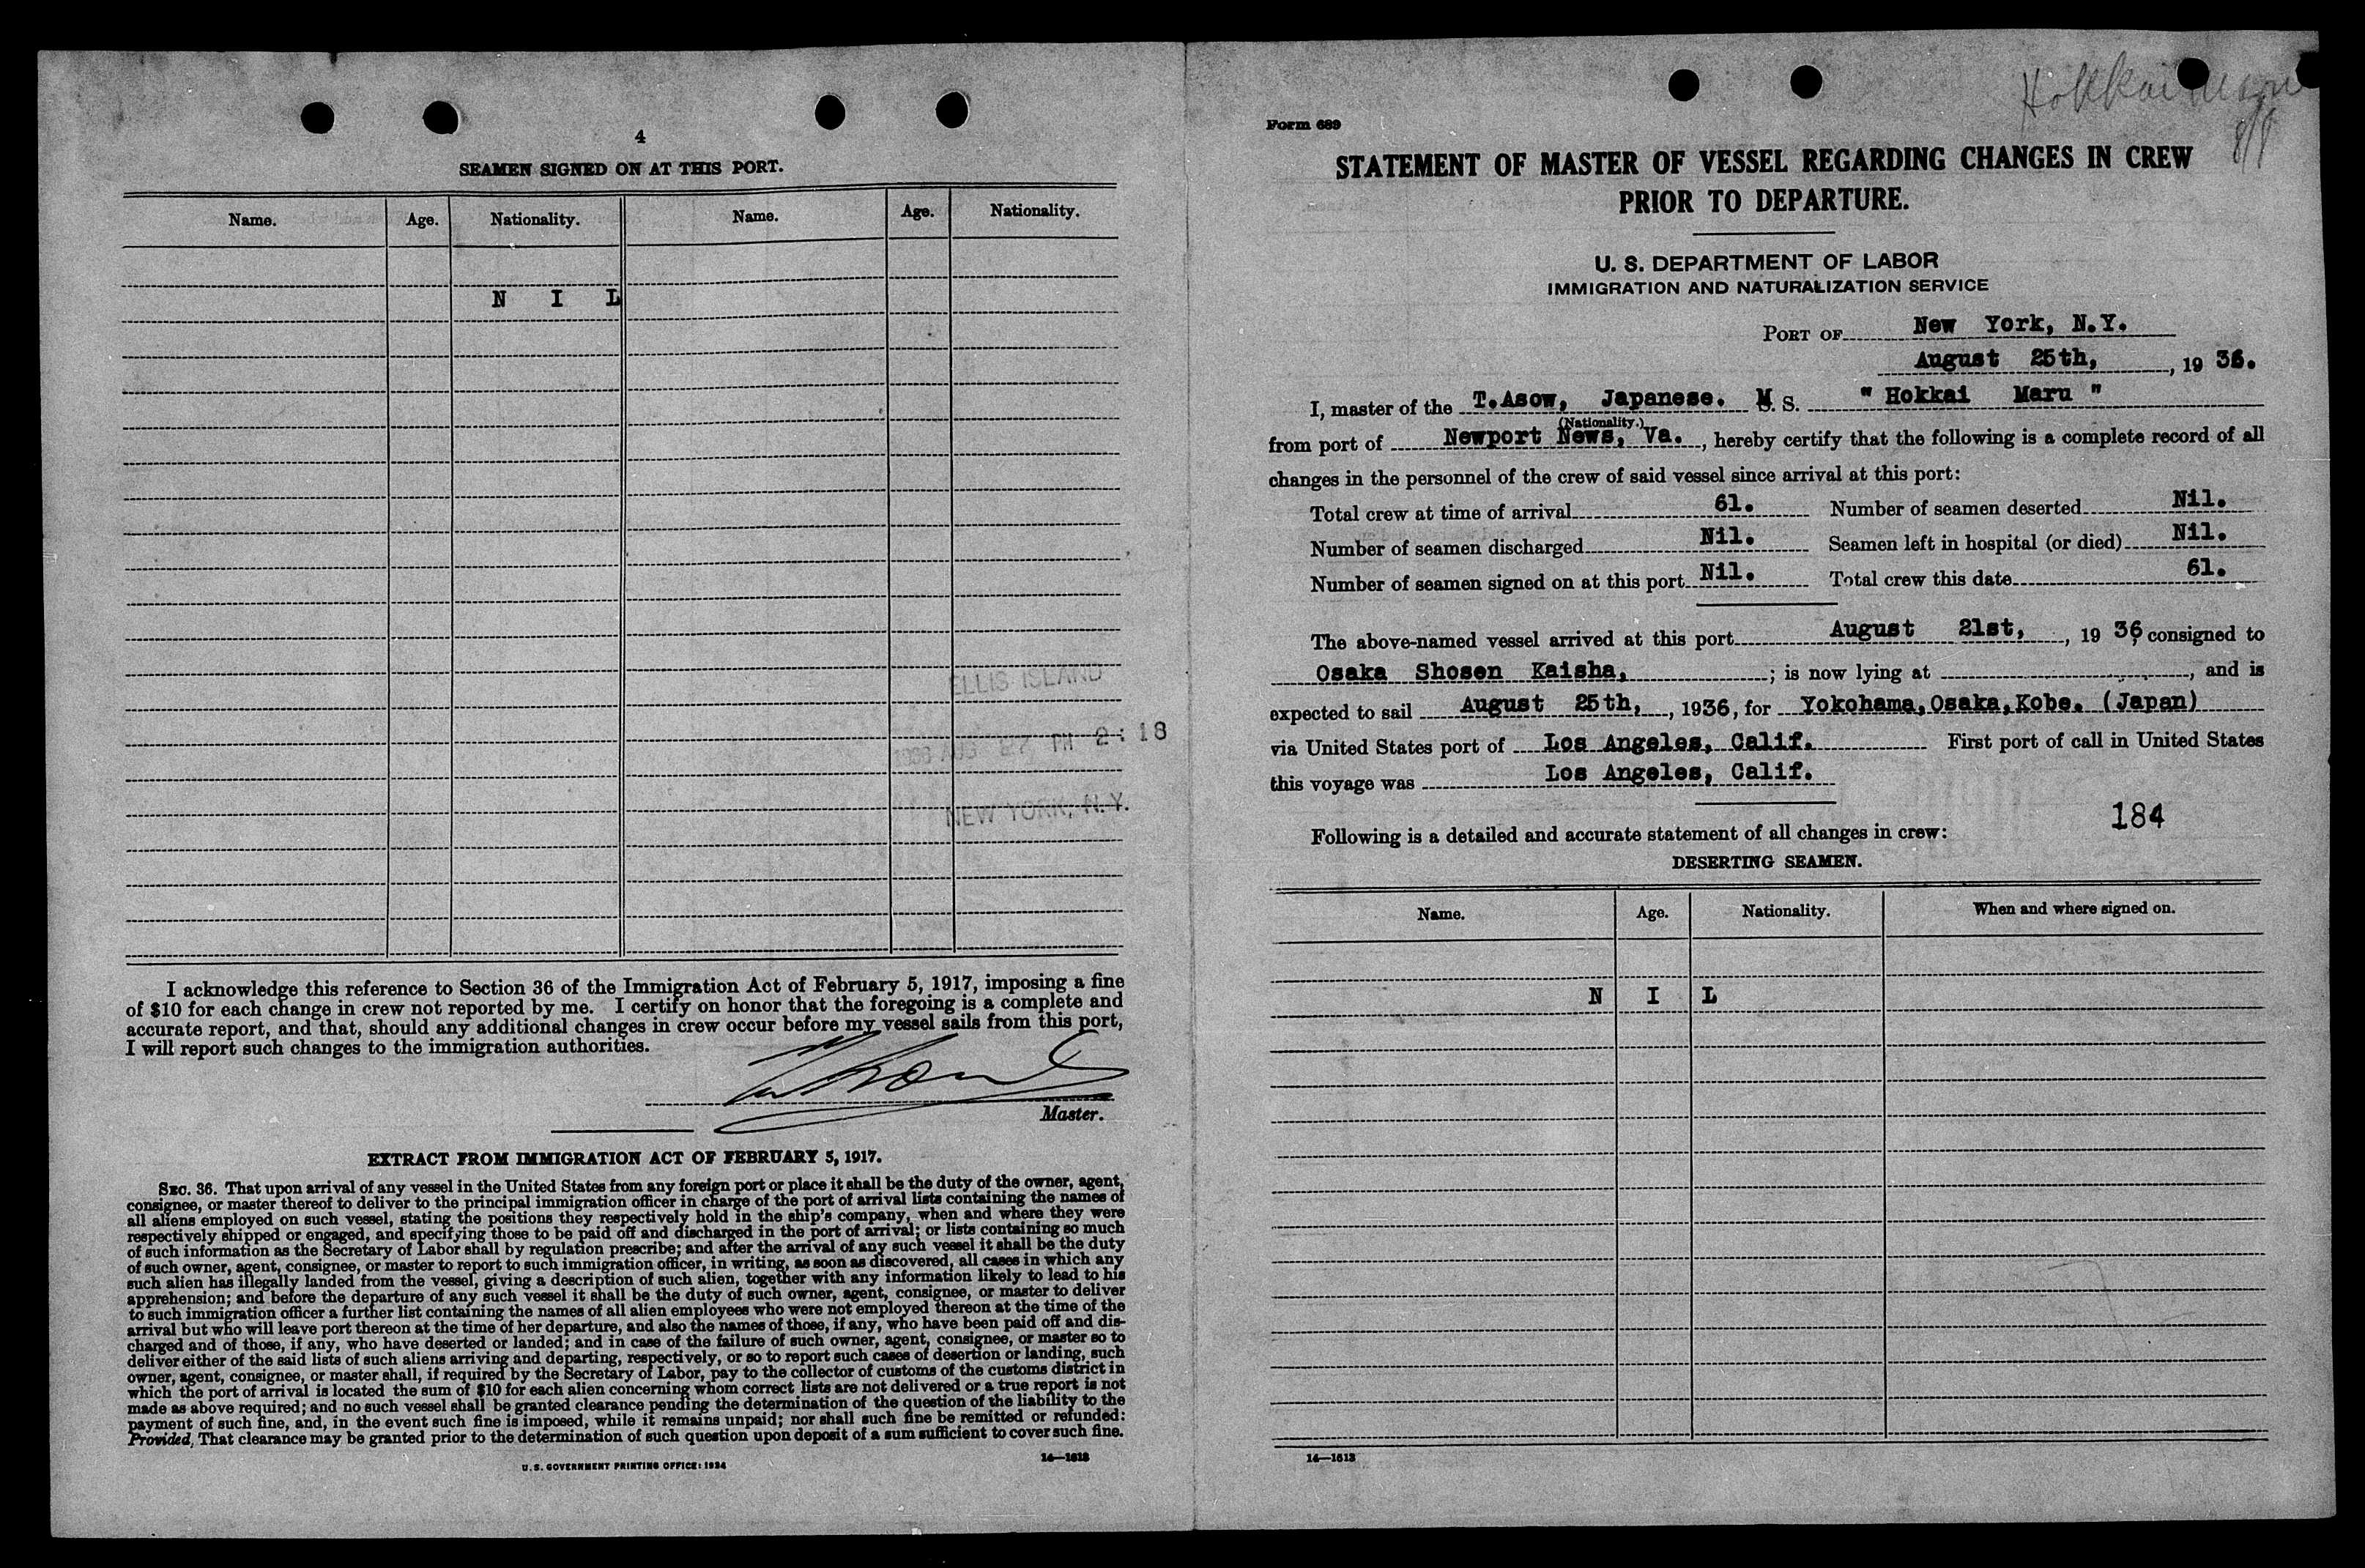 4
SEAMEN SIGNED ON AT THIS PORT.
Name. Age. Nationality. Name. Age. Nationality.
N I L
ELLIS ISLAND
1936 AUG 27 PM 2:18
NEW YORK, N.Y.
I acknowledge this reference to Section 36 of the Immigration Act of February 5, 1917, imposing a fine
of $10 for each change in crew not reported by me. I certify on honor that the foregoing is a complete and
accurate report, and that, should any additional changes in crew occur before my vessel sails from this port,
I will report such changes to the immigration authorities.
Master.
EXTRACT FROM IMMIGRATION ACT OF FEBRUARY 5, 1917.
SEC. 36. That upon arrival of any vessel in the United States from any foreign port or place it shall be the duty of the owner, agent,
consignee, or master thereof to deliver to the principal immigration officer in charge of the port of arrival lists containing the names of
all aliens employed on such vessel, stating the positions they respectively hold in the ship's company, when and where they were
respectively shipped or engaged, and specifying those to be paid off and discharged in the port of arrival; or lists containing so much
of such information as the Secretary of Labor shall by regulation prescribe; and after the arrival of any such vessel it shall be the duty
of such owner, agent, consignee, or master to report to such immigration officer, in writing, as soon as discovered, all cases in which any
such alien has illegally landed from the vessel, giving a description of such alien, together with any information likely to lead to his
apprehension; and before the departure of any such vessel it shall be the duty of such owner, agent, consignee, or master to deliver
to such immigration officer a further list containing the names of all alien employees who were not employed thereon at the time of the
arrival but who will leave port thereon at the time of her departure, and also the names of those, if any, who have been paid off and dis-
charged and of those, if any, who have deserted or landed; and in case of the failure of such owner, agent, consignee, or master so to
deliver either of the said lists of such aliens arriving and departing, respectively, or so to report such cases of desertion or landing, such
owner, agent, consignee, or master shall, if required by the Secretary of Labor, pay to the collector of customs of the customs district in
which the port of arrival is located the sum of $10 for each alien concerning whom correct lists are not delivered or a true report is not
made as above required; and no such vessel shall be granted clearance pending the determination of the question of the liability to the
payment of such fine, and, in the event such fine is imposed, while it remains unpaid; nor shall such fine be remitted or refunded:
Provided, That clearance may be granted prior to the determination of such question upon deposit of a sum sufficient to cover such fine.
U.S. GOVERNMENT PRINTING OFFICE: 1934
14—1613
Hokkai Maru
Form 689
STATEMENT OF MASTER OF VESSEL REGARDING CHANGES IN CREW
PRIOR TO DEPARTURE.
U. S. DEPARTMENT OF LABOR
IMMIGRATION AND NATURALIZATION SERVICE
PORT OF New York, N.Y.
August 25th, , 19 36.
I, master of the T.Asow, Japanese. M. S. " Hokkai Maru "
(Nationality.)
from port of Newport News, Va. , hereby certify that the following is a complete record of all
changes in the personnel of the crew of said vessel since arrival at this port:
Total crew at time of arrival 61. Number of seamen deserted Nil.
Number of seamen discharged Nil. Seamen left in hospital (or died) Nil.
Number of seamen signed on at this port Nil. Total crew this date 61.
The above-named vessel arrived at this port August 21st, , 19 36, consigned to
Osaka Shosen Kaisha, ; is now lying at , and is
expected to sail August 25th, , 1936, for Yokohama,Osaka,Kobe. (Japan)
via United States port of Los Angeles, Calif. First port of call in United States
this voyage was Los Angeles, Calif.
184
Following is a detailed and accurate statement of all changes in crew:
DESERTING SEAMEN.
Name. Age. Nationality. When and where signed on.
N I L
14—1613